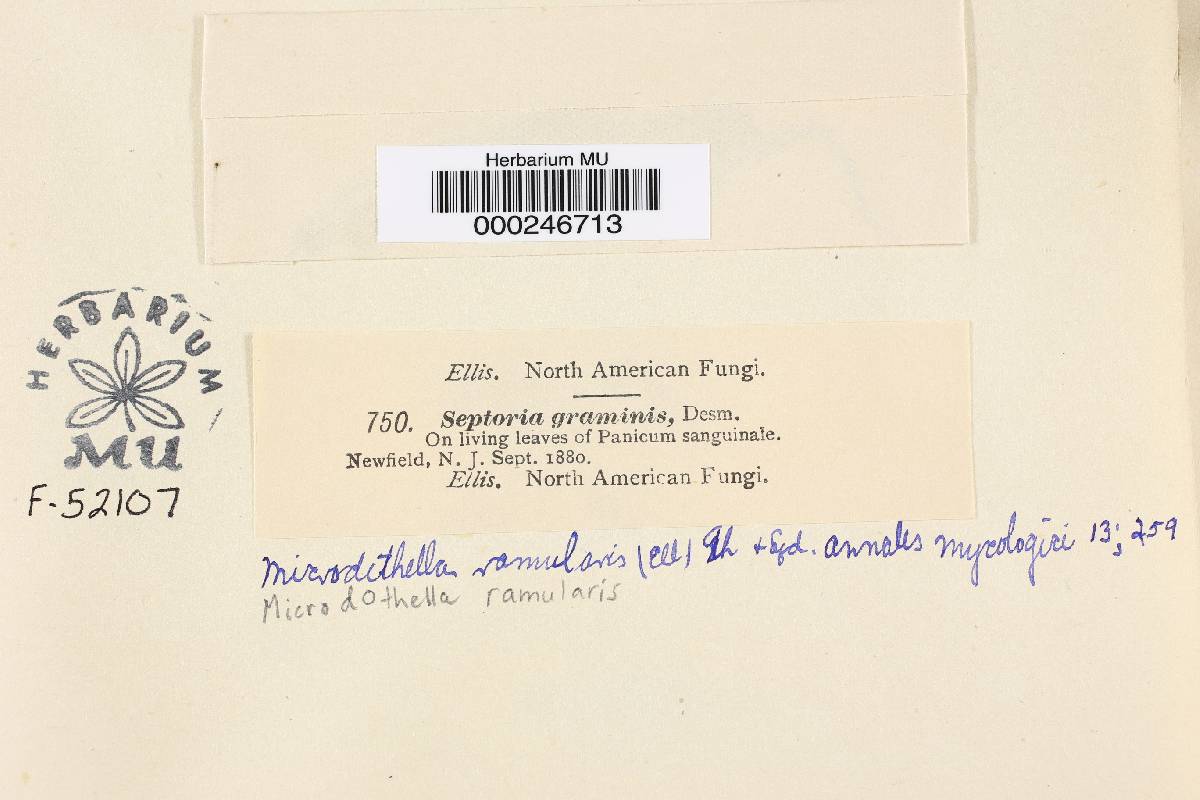 Herbarium MU
000246713
HERBARIUM
MU
F-52107
Ellis. North American Fungi.
750. Septoria graminis, Desm.
On living leaves of Panicum sanguinale.
Newfield, N. J. Sept. 1880.
Ellis. North American Fungi.
Microdothella ramularis (Ell) Th + Syd. annales mycologici 13; 259
Microdothella ramularis